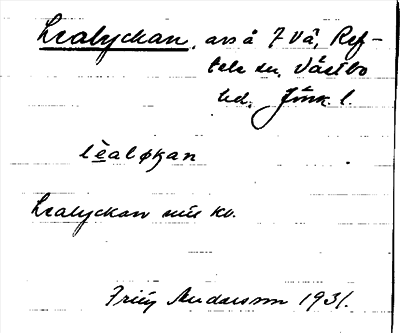 Lealyckan, avs å 7 Vå, Ref-
tele sn, Västbo
hd, Jönk. l.
lèaløkan
Lealyckan mis kv.
Andersson 1931.